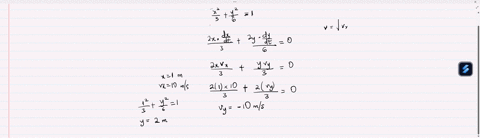 x²/3 + y²/6 = 1
2x·dx/dt/3 + 2y·dy/dt/6 = 0
v = √vx
2x vx/3 + y vy/3 = 0
x = 1 m
vx = 10 m/s
2(1)×10/3 + 2(vy)/3 = 0
x²/3 + y²/6 = 1
vy = -10 m/s
y = 2 m